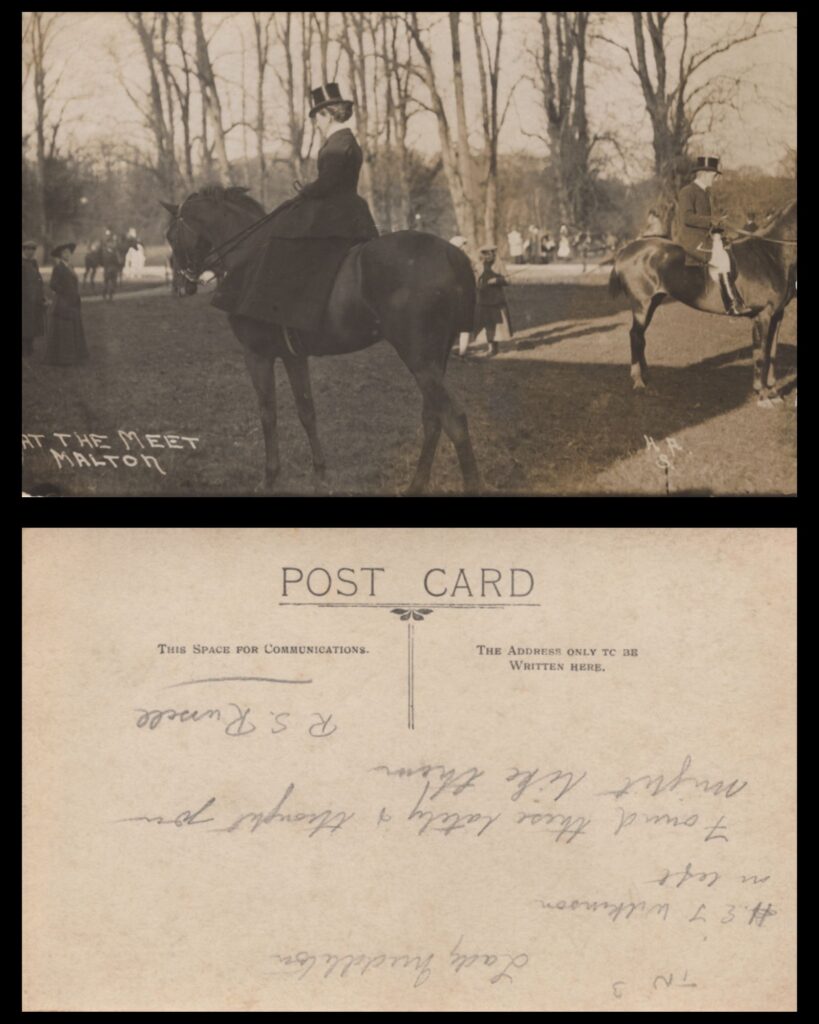 AT THE MEET
MALTON
H. R.
S.
POST CARD
THIS SPACE FOR COMMUNICATIONS.
THE ADDRESS ONLY TO BE
WRITTEN HERE.
Lady Middleton
H.E J Wilkinson
on left
Found these lately & thought you
might like them
R S. Russell